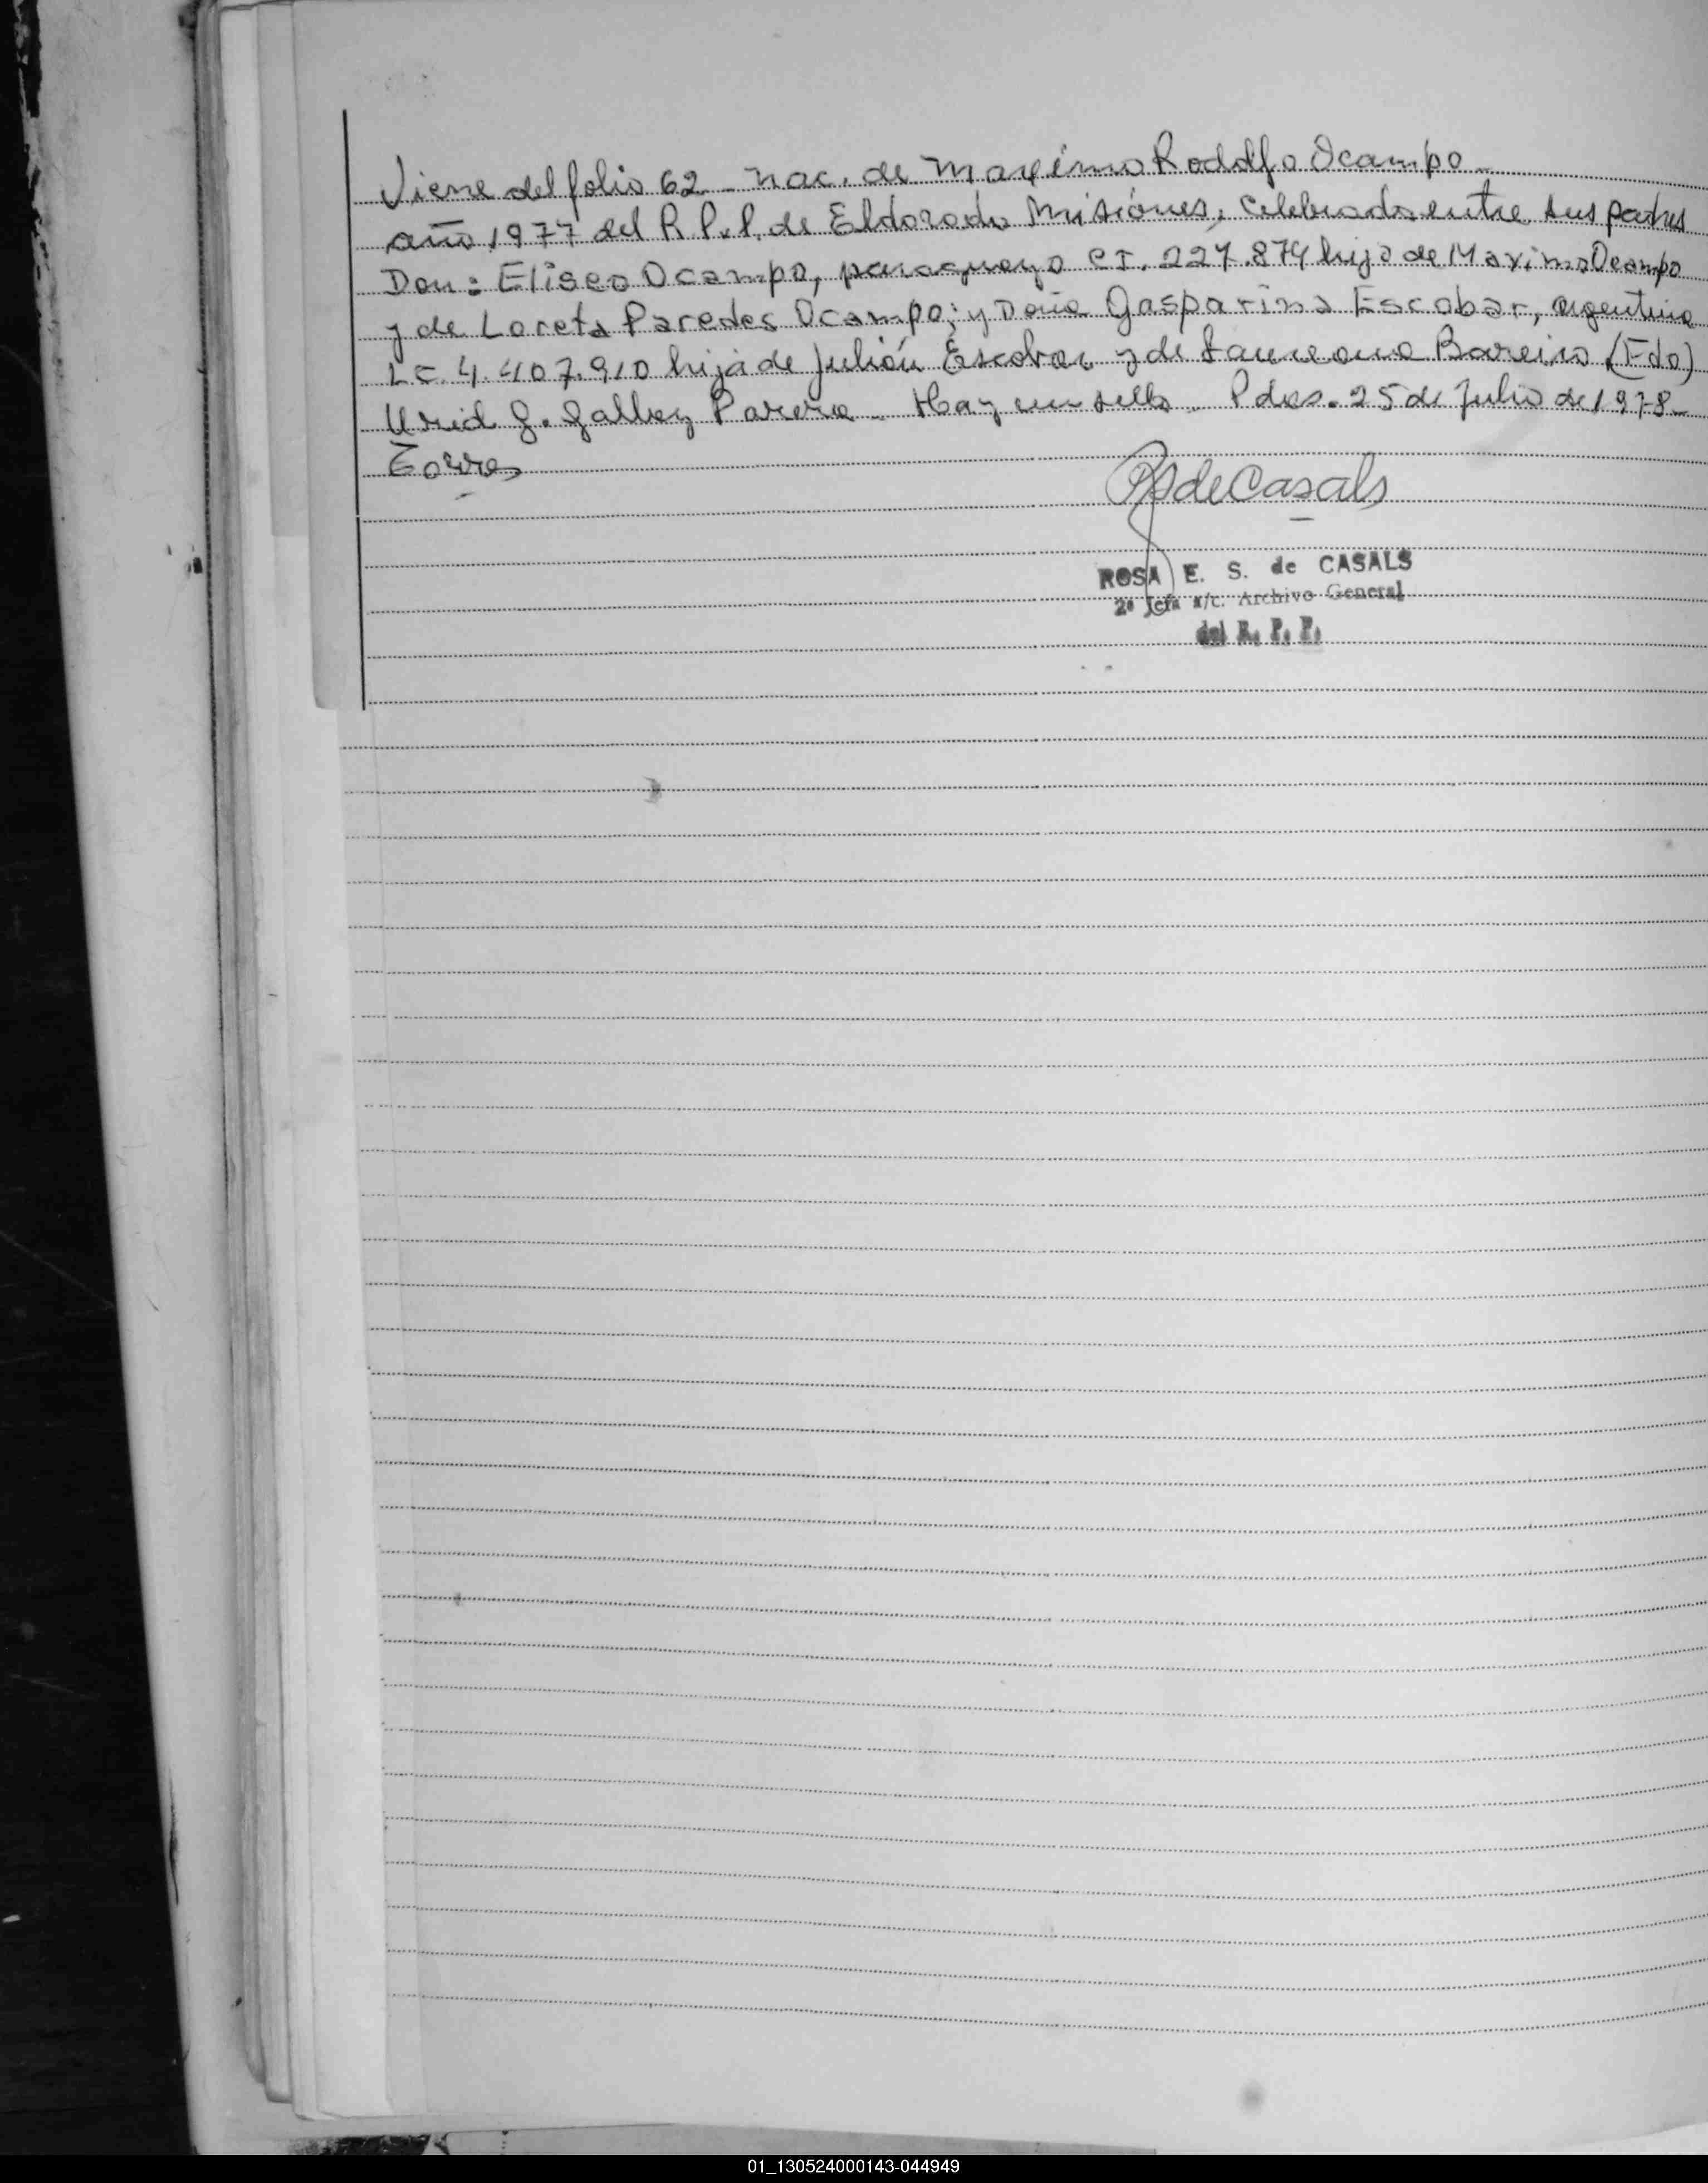 Viene del folio 62 - nac. de Maximo Rodolfo Ocampo -
año 1977 del R.P.P. de Eldorado Misiones, Celebrado entre sus padres
Don: Eliseo Ocampo, paraguayo CI. 227.874 hijo de Maximo Ocampo
y de Loreta Paredes Ocampo; y Doña Gasparina Escobar, argentina
LC. 4.407.910 hija de Julián Escobar y de Laureana Bareiro (Fdo)
G. Parera - Hay un sello - Pdas. 25 de Julio de 1978 -
Torres
RS de Casals
ROSA E. S. de CASALS
2ª Jefa a/c. Archivo General
del R. P. P.
01_130524000143-044949